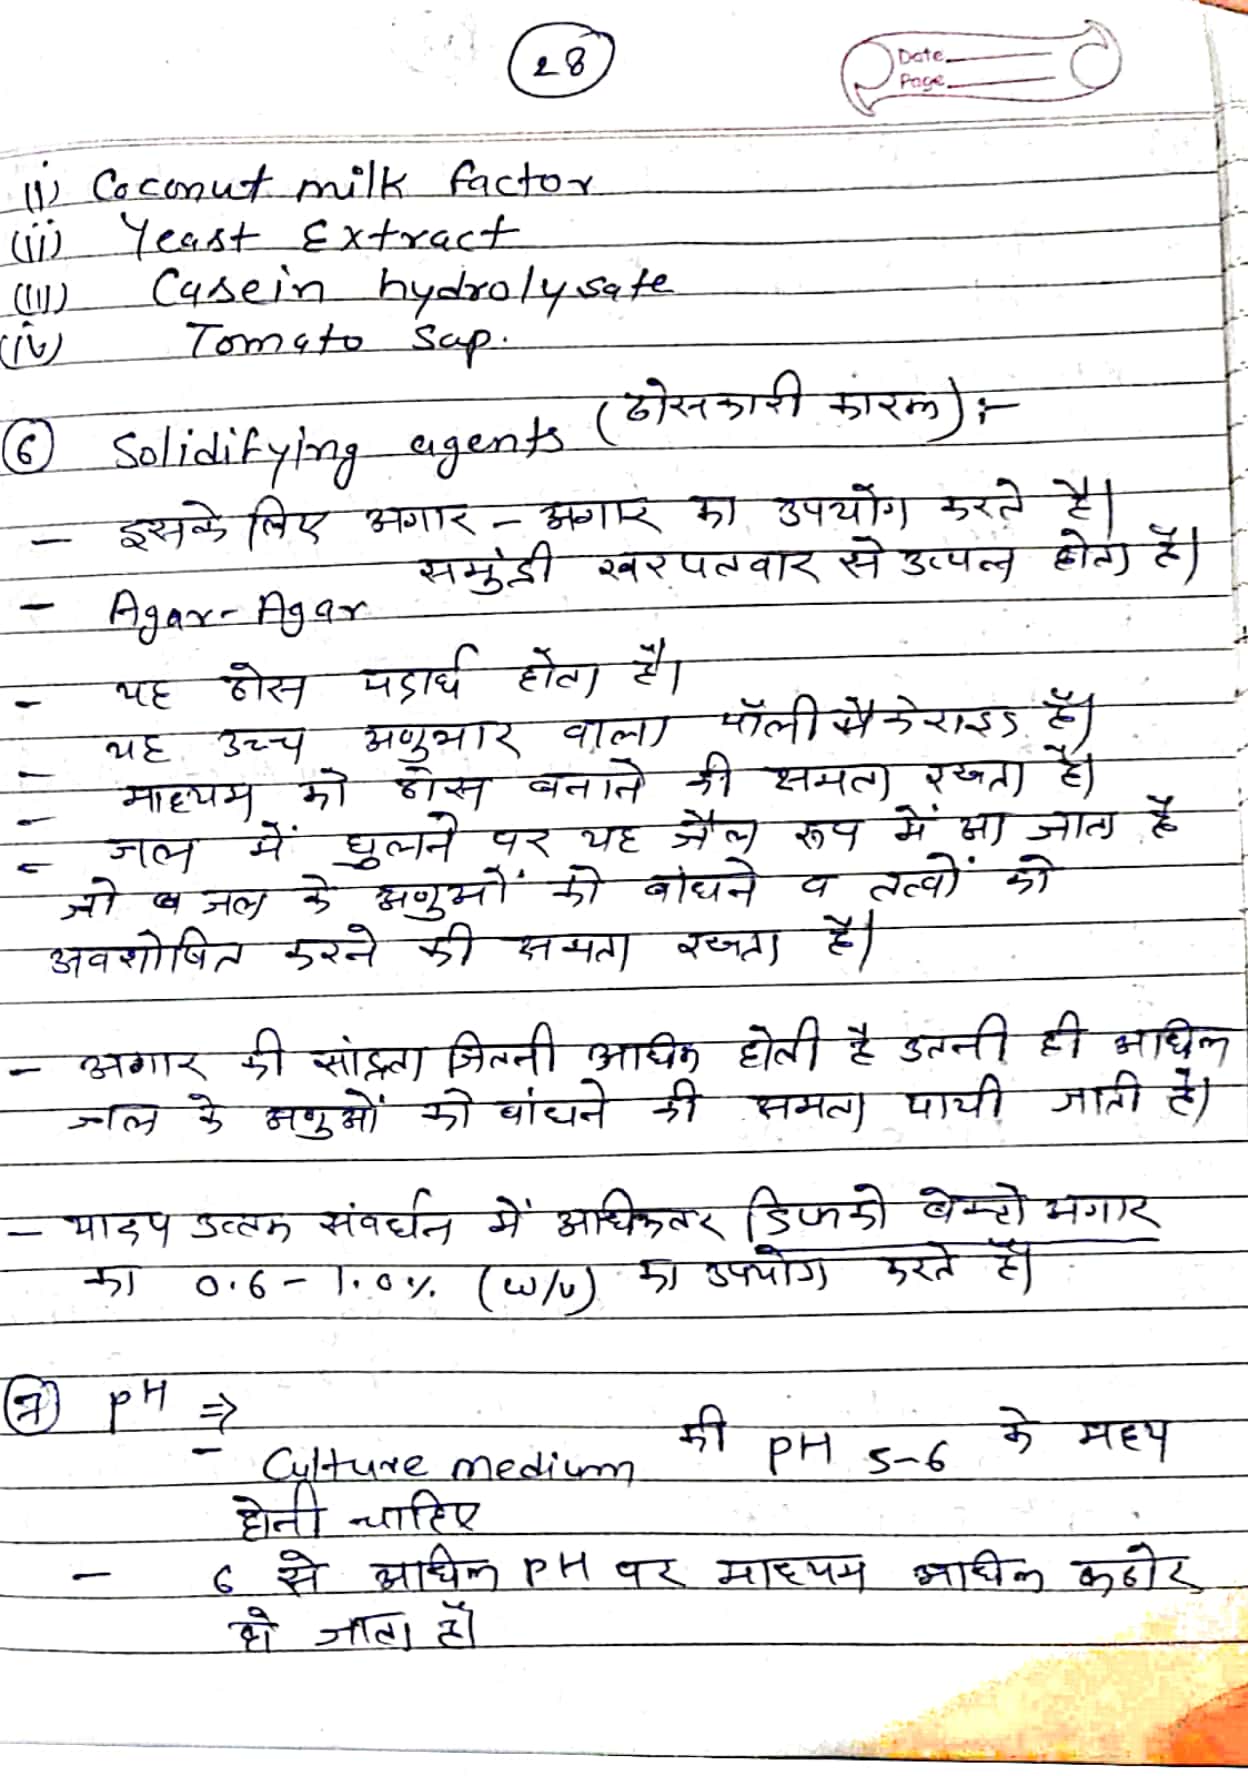 28
Date
Page
(i) Coconut milk factor
(ii) Yeast Extract
(iii) Casein hydrolysate
(iv) Tomato Sap.
(ठोसकारी कारक) :-
⑥ Solidifying agents
- इसके लिए अगार - अगार का उपयोग करते है।
समुंद्री खरपतवार से उत्पन्न होता है।
- Agar-Agar
- यह ठोस पदार्थ होता है।
- यह उच्च अणुभार वाला पॉलीसैकेराइड है।
- माध्यम को ठोस बनाने की क्षमता रखता है।
- जल में घुलने पर यह जैल रूप में आ जाता है
जो व जल के अणुओं को बांधने व तत्वों को
अवशोषित करने की क्षमता रखता है।
- अगार की सांद्रता जितनी अधिक होती है उतनी ही अधिक
जल के अणुओं को बांधने की क्षमता पायी जाती है।
- पादप उत्तक संवर्धन में अधिकतर डिफको बेक्टो अगार
का 0.6 - 1.0% (w/v) का उपयोग करते है।
⑦ pH ⇒
- Culture medium की pH 5-6 के मध्य
होनी चाहिए
- 6 से अधिक pH पर माध्यम अधिक कठोर
हो जाता है।